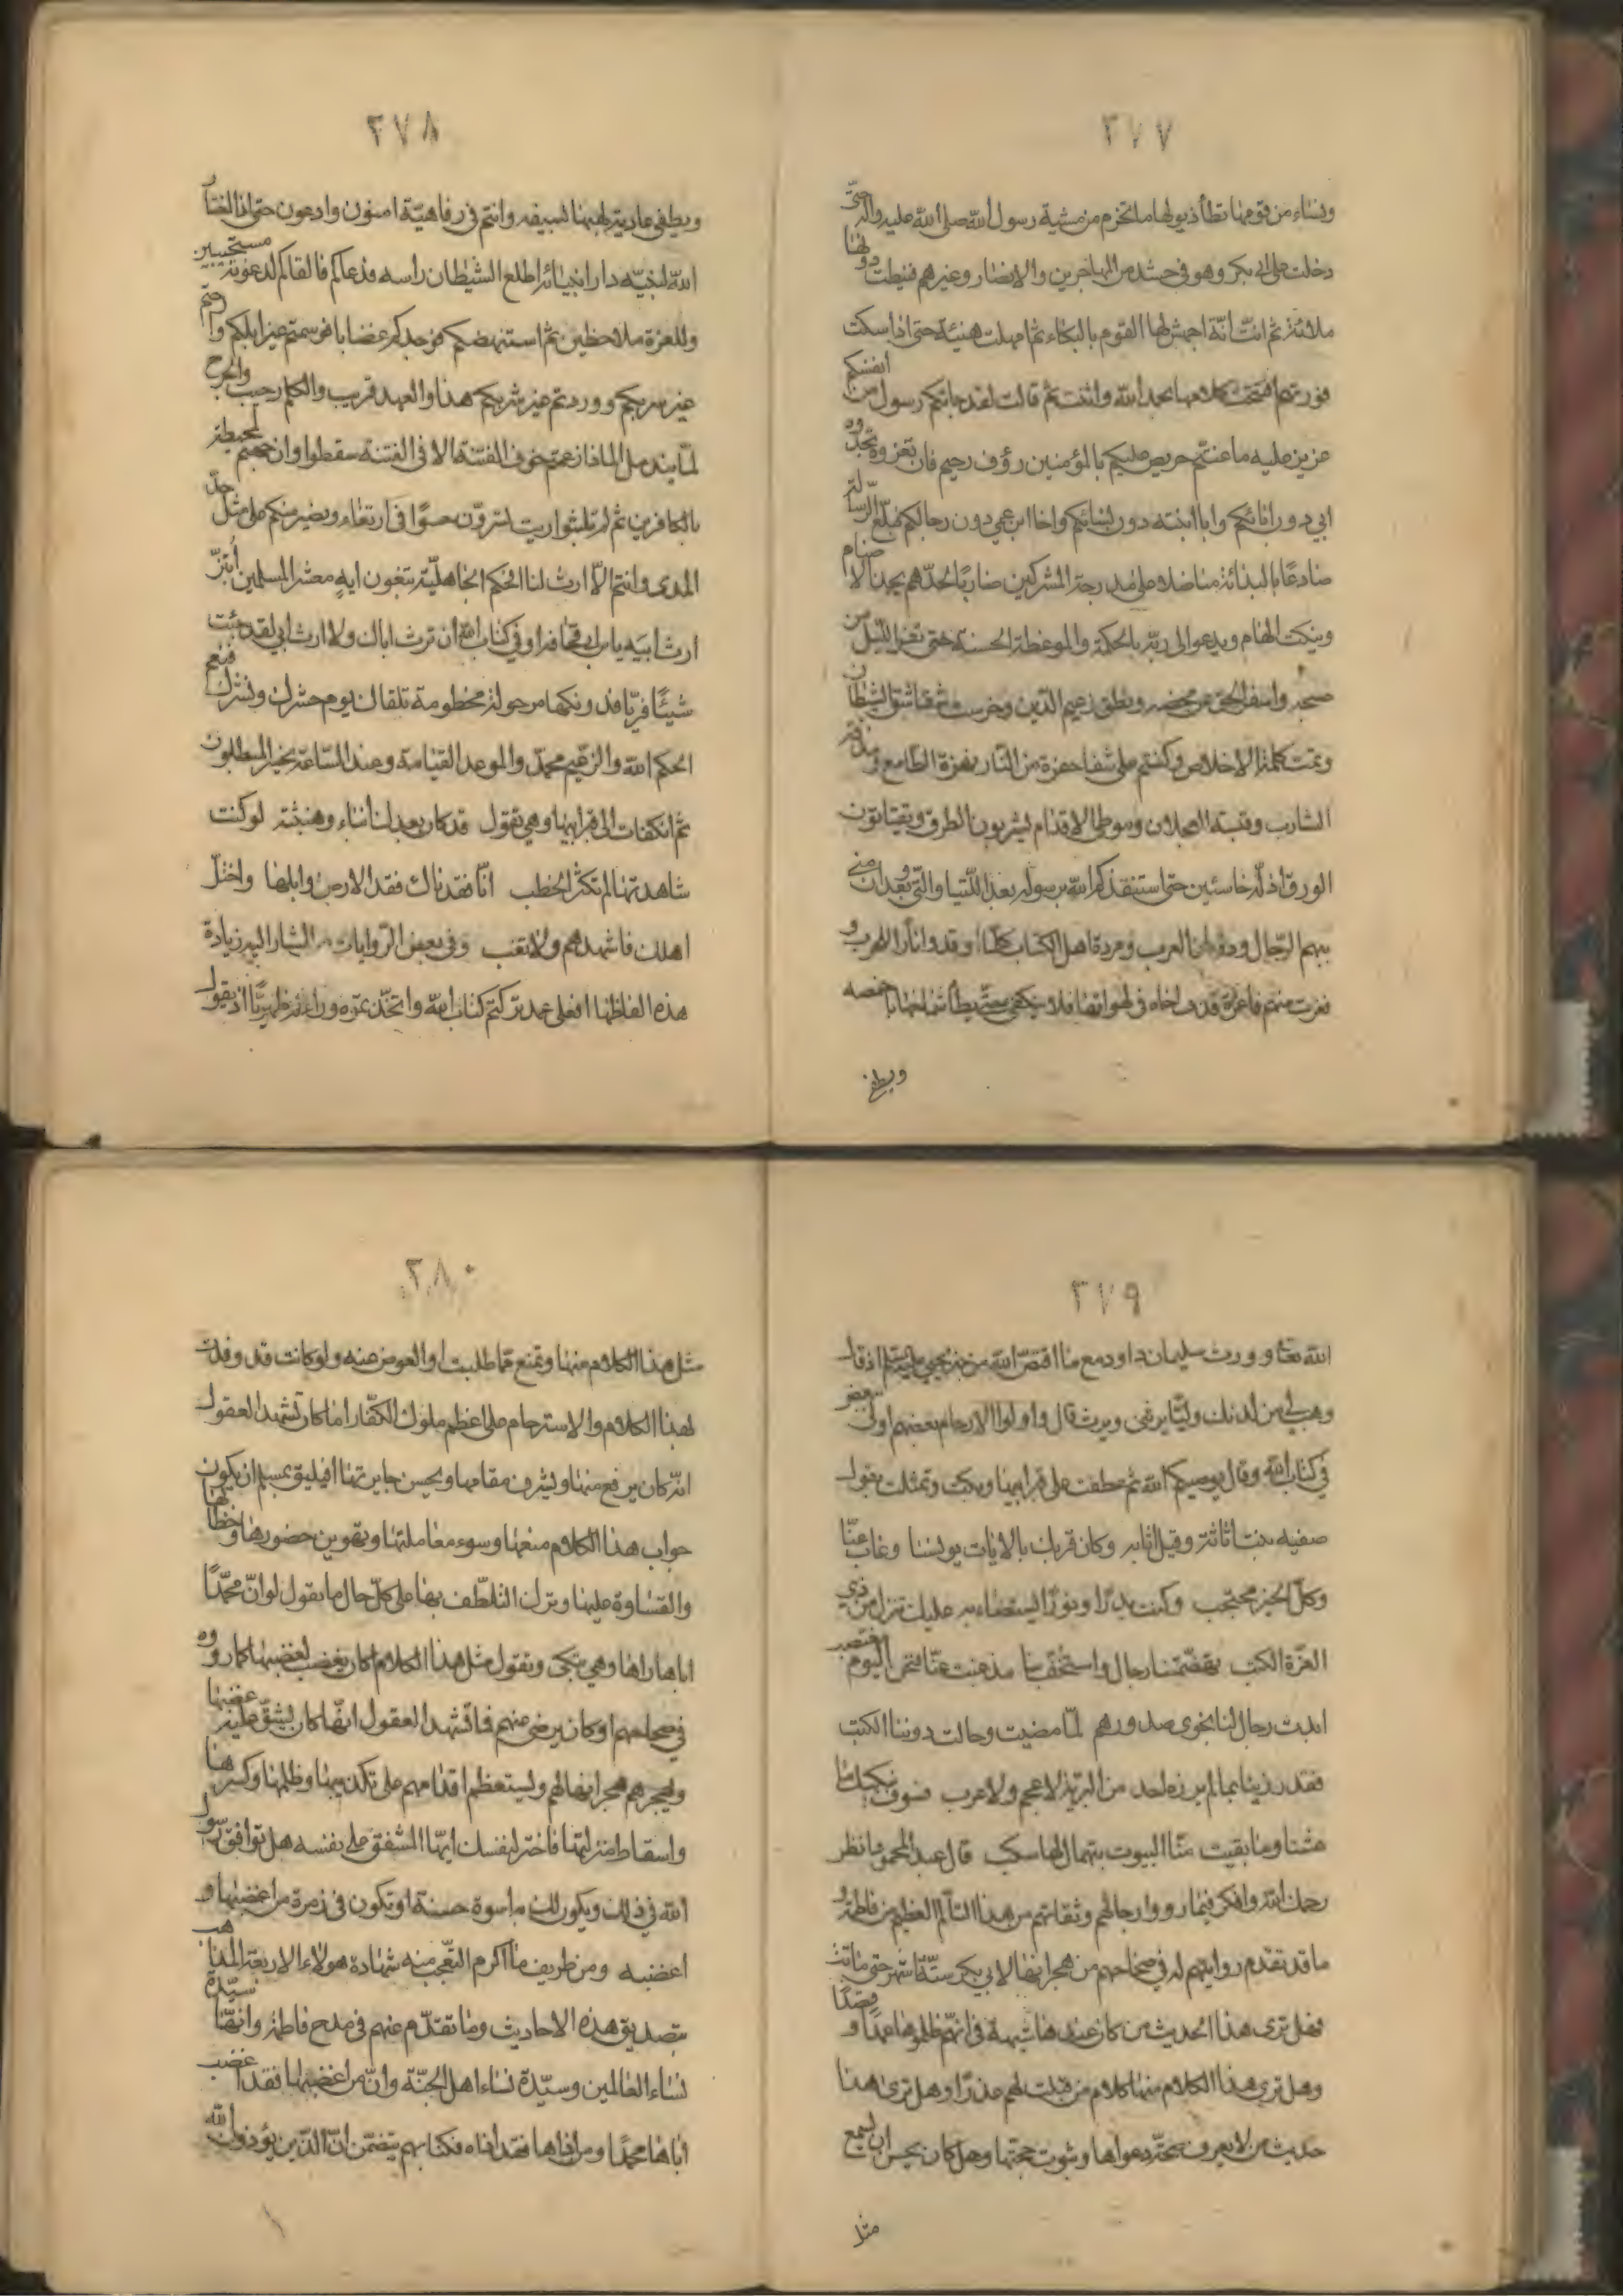 ٣٧٧
ونساء من قومها تطأ ذيولها ما تخرم من مشية رسول الله صلى الله عليه واله حتى
دخلت على ابى بكر وهو فى حشد من المهاجرين والانصار وغيرهم فنيطت دونها
ملائة ثم انت انة اجهش لها القوم بالبكاء ثم امهلت هنيئة حتى اذا سكت
فورتهم افتتحت كلامها بحمد الله واثنت ثم قالت لقد جائكم رسول من انفسكم
عزيز عليه ما عنتم حريص عليكم بالمؤمنين رؤف رحيم فان تعزوه تجدوه
ابى دون ابائكم وابا ابنته دون نسائكم واخا ابن عمى دون رجالكم مبلغ الرسالة
صادعا بالنذارة مناضلا على مدرجة المشركين ضاربا لحدهم يجذ الاصنام
وينكت الهام ويدعو الى ربه بالحكمة والموعظة الحسنة حتى تفرا الليل عن
صبحه واسفر الحق عن محضه ونطق زعيم الدين وخرست شقاشق الشيطان
وتمت كلمة الاخلاص وكنتم على شفا حفرة من النار نهزة الطامع ومذقة
الشارب وقبسة العجلان وموطئ الاقدام تشربون الطرق وتقتاتون
الورق اذلة خاسئين حتى استنقذكم الله برسوله بعد اللتيا والتى وبعد ان منى
ببهم الرجال وذؤبان العرب ومردة اهل الكتاب كلما اوقدوا نارا للحرب و
فغرت منهم فاغرة قذف اخاه فى لهواتها فلا ينكفى حتى يطأ صماخها باخمصه
ويطفى
٣٧٨
ويطفى عادية لهبها لسيفه وانتم فى رفاهية امنون وادعون حتى اذا اختار
الله لنبيه دار انبيائه اطلع الشيطان راسه فدعاكم فالفاكم لدعوته مستجيبين
وللعزة ملاحظين ثم استنهضكم فوجدكم غضابا فوسمتم غير ابلكم واحتم
غير سربكم ووردتم غير شربكم هذا والعهد قريب والكلم رحيب والجرح
لما يندمل الماذا زعمتم خوف الفتنة الا فى الفتنة سقطوا وان جهنم لمحيطة
بالكافرين ثم لم تلبثوا ريث تسرون حسوا فى ارتغاء ونصبر منكم على مثل حز
المدى وانتم الا ارث لنا الحكم الجاهلية تبغون ايه معشر المسلمين ابتز
ارث ابيه يابن ابى قحافه او فى كتاب الله ان ترث اباك ولا ارث ابى لقد جئت
شيئا فريا فدونكها مرحولة مخطومة تلقاك يوم حشرك ونشرك فنعم
الحكم الله والزعيم محمد والموعد القيامة وعند الساعة يخسر المبطلون
ثم انكفات الى قبر ابيها وهى تقول قد كان بعدك انباء وهنبثة لو كنت
شاهدتها لم تكثر الخطب انا فقدناك فقد الارض وابلها واختل
اهلك فاشهدهم ولا تغب وفى بعض الروايات المشار اليه زيادة
هذه الفاظها افعلى عمد تركتم كتاب الله واتخذتموه وراءكم ظهريا اذ يقول
٣٧٩
الله تعا وورث سليمان داود مع ما اقتص الله من خبر يحيى عليه السلم اذ قال
وهب لى من لدنك وليا يرثنى ويرث قال واولوا الارحام بعضهم اولى ببعض
فى كتاب الله وقال يوصيكم الله ثم عطفت على قبر ابيها وبكت وتمثلت بقول
صفيه بنت اثاثة وقيل اثابه وكان قربك بالايات يونسنا وغاب عنا
وكل الخير محتجب وكنت بدرا ونورا يستضاء به عليك تنزل من ذى
العزة الكتب تهضمتنا رجال واستخف بنا مذ غبت عنا فنحن اليوم نغتصب
ابدت رجال لنا نجوى صدورهم لما مضيت وحالت دوننا الكتب
فقد رزينا بما لم يرزه احد من البرية لا عجم ولا عرب فسوف نبكيك ما
عشنا وما بقيت منا البيوت بتهمال لها سكب قال عبد المحمود فانظر
رحمك الله وافكر فيما رووا رجالهم وثقاتهم من هذا التالم العظيم من فاطمة و
ما قد تقدم روايتهم له فى صحاحهم من هجرانها لابى بكر ستة اشهر حتى ماتت
فهل ترى هذا الحديث من كان عنده شبهة فى انهم ظلموها عمدا وقصدا و
وهل ترى هذا الكلام منها كلام من قبلت لهم عذرا وهل ترى هذا
حديث من لا يعرف صحة دعواها وثبوت حجتها وهل كان يحسن ان يسمع
مثل
٣٨٠
مثل هذا الكلام منها وتمنع مما طلبت او العوض عنه ولو كانت قد وفدت
لهذا الكلام والاسترحام على اعظم ملوك الكفار اما كان تشهد العقول
انه كان يرفع منها ويشرف مقامها ويحسن جايزتها افيليق بمسلم ان يكون
جواب هذا الكلام منعها وسوء معاملتها وتهوين حضورها وخطابها
والقساوة عليها وترك التلطف بها على كل حال ما يقول لو ان محمدا
اباها راها وهى تبكى وتقول مثل هذا الكلام اكان يغضب لغضبها كما رووه
فى صحاحهم او كان يرضى عنهم فما تشهد العقول انه كان يشق عليه غضبها
ويهجرهم هجرانها لهم ويستعظم اقدامهم على تكذيبها وظلمها وكسرها
واسقاط منزلتها فاختر لنفسك ايها المشفق على نفسه هل توافق رسول
الله فى ذلك ويكون لك به اسوة حسنة او تكون فى زمرة من اغضبها و
اغضبه ومن طريف ما اكرم التعجب منه شهادة هولاء الاربعة المذاهب
بتصديق هذه الاحاديث وما تقدم عنهم فى مدح فاطمة وانها سيدة
نساء العالمين وسيدة نساء اهل الجنة وان من اغضبها فقد اغضب
اباها محمدا ومن اذاها فقد اذاه فكتابهم يتضمن ان الذين يؤذون الله